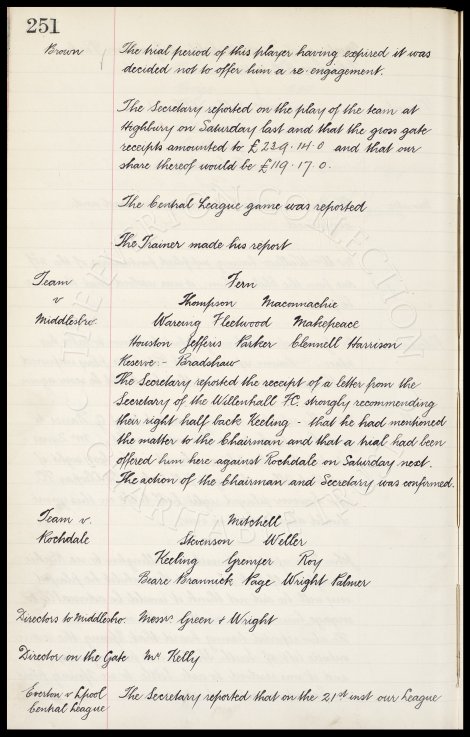 251
Brown The trial period of this player having expired it was
decided not to offer him a re-engagement.
The Secretary reported on the play of the team at
Highbury on Saturday last and that the gross gate
receipts amounted to £239.14.0 and that our
share thereof would be £119.17.0.
The Central League game was reported
The Trainer made his report
Team Fern
v Thompson Maconnachie
Middlesbro. Wareing Fleetwood Makepeace
Houston Jefferis Parker Clennell Harrison
Reserve - Bradshaw
The Secretary reported the receipt of a letter from the
Secretary of the Willenhall FC. strongly recommending
their right half back Keeling - that he had mentioned
the matter to the Chairman and that a trial had been
offered him here against Rochdale on Saturday next.
The action of the Chairman and Secretary was confirmed.
Team v. Mitchell
Rochdale Stevenson Weller
Keeling Grenyer Roy
Beare Brannick Page Wright Palmer
Directors to Middlesbro: Messrs. Green & Wright
Director on the Gate Mr Kelly
Everton v L'pool The Secretary reported that on the 21st inst our League
Central League